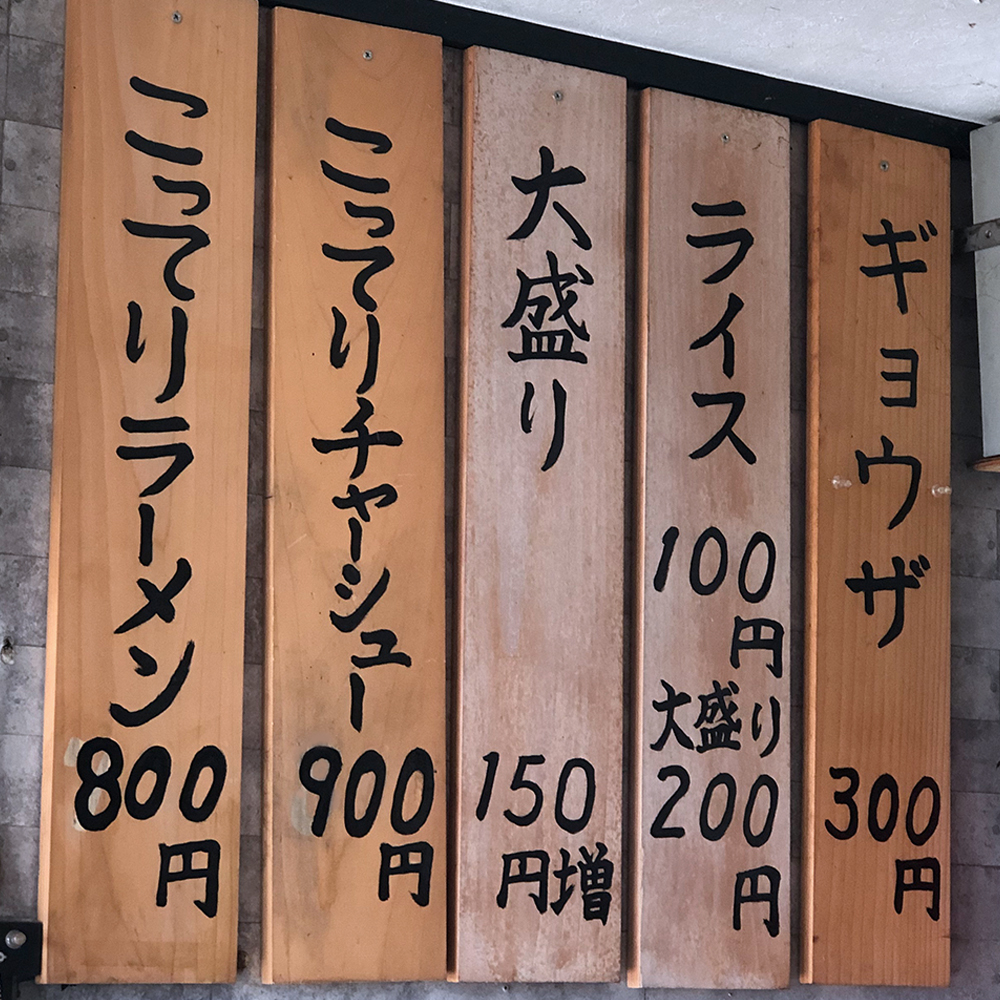 こってりラーメン
800
円
こってりチャーシュー
900
円
大盛り
150
円増
ライス
100
円
大盛り
200
円
ギョウザ
300
円